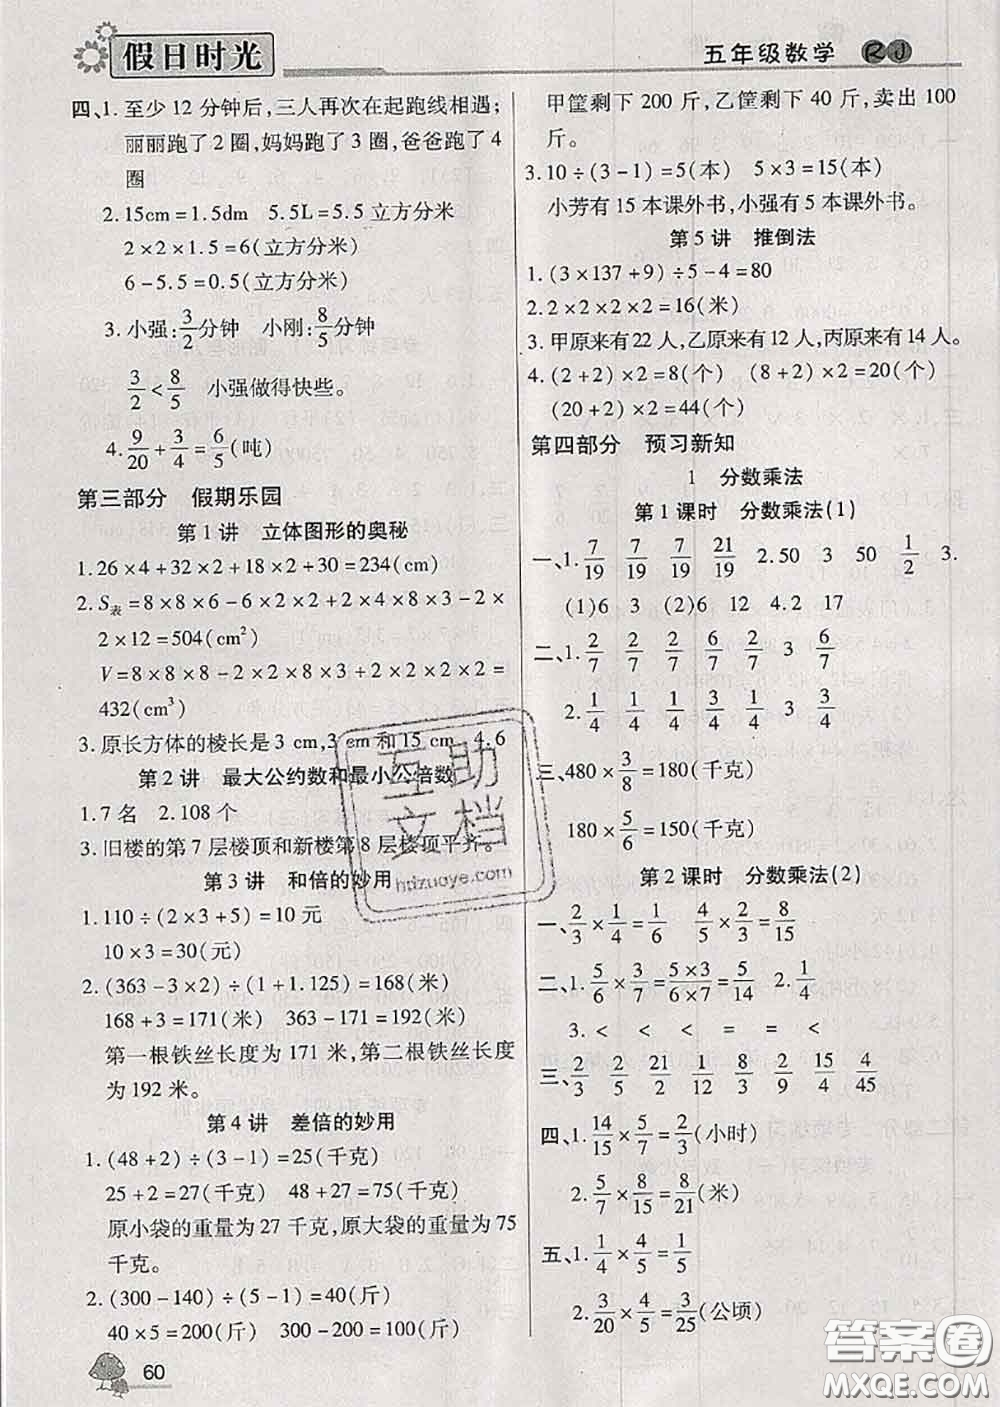 假日时光
五年级数学 RJ
四、1.至少12分钟后,三人再次在起跑线相遇;
丽丽跑了2圈,妈妈跑了3圈,爸爸跑了4
圈
2.15cm=1.5dm 5.5L=5.5立方分米
2×2×1.5=6(立方分米)
6-5.5=0.5(立方分米)
3.小强:3/2分钟 小刚:8/5分钟
3/2<8/5 小强做得快些。
4.9/20+3/4=6/5(吨)
第三部分 假期乐园
第1讲 立体图形的奥秘
1.26×4+32×2+18×2+30=234(cm)
2.S表=8×8×6-6×2×2+4×8×3-2×
2×2×12=504(cm²)
V=8×8×8-2×2×8×3+2×2×2×2=
432(cm³)
3.原长方体的棱长是3cm,3cm和15cm 4.6
第2讲 最大公约数和最小公倍数
1.7名 2.108个
3.旧楼的第7层楼顶和新楼第8层楼顶平齐。
第3讲 和倍的妙用
1.110÷(2×3+5)=10元
10×3=30(元)
2.(363-3×2)÷(1+1.125)=168(米)
168+3=171(米) 363-171=192(米)
第一根铁丝长度为171米,第二根铁丝长度
为192米。
第4讲 差倍的妙用
1.(48+2)÷(3-1)=25(千克)
25+2=27(千克) 48+27=75(千克)
原小袋的重量为27千克,原大袋的重量为75
千克。
2.(300-140)÷(5-1)=40(斤)
40×5=200(斤) 300-200=100(斤)
60
甲筐剩下200斤,乙筐剩下40斤,卖出100
斤。
3.10÷(3-1)=5(本) 5×3=15(本)
小芳有15本课外书,小强有5本课外书。
第5讲 推倒法
1.(3×137+9)÷5-4=80
2.2×2×2×2=16(米)
3.甲原来有22人,乙原来有12人,丙原来有14人。
4.(2+2)×2=8(个) (8+2)×2=20(个)
(20+2)×2=44(个)
第四部分 预习新知
1 分数乘法
第1课时 分数乘法(1)
一、1.7/19 7/19 7/19 21/19 2.50 3 50 1/2 3.
(1)6 3 (2)6 12 4.2 17
二、1.2/7 2/7 2/7 6/7 2/7 3 6/7
2.1/4 1/4 1/4 3/4 1/4 3 3/4
三、480×3/8=180(千克)
180×5/6=150(千克)
第2课时 分数乘法(2)
一、2/3×1/4=1/6 4/5×2/3=8/15
二、1.5/6×3/7=5×3/6×7=5/14 2.1/4
3.< < < = = <
三、2/3 2/5 21/2 1/12 8/3 2/9 15/4 4/45
四、1.14/15×5/7=2/3(小时)
2.5/7×8/15=8/21(米)
五、1.1/4×4/5=1/5
2.3/20×4/5=3/25(公顷)
互助
文档
hdzuoye.com
答案圈
MXQE.COM